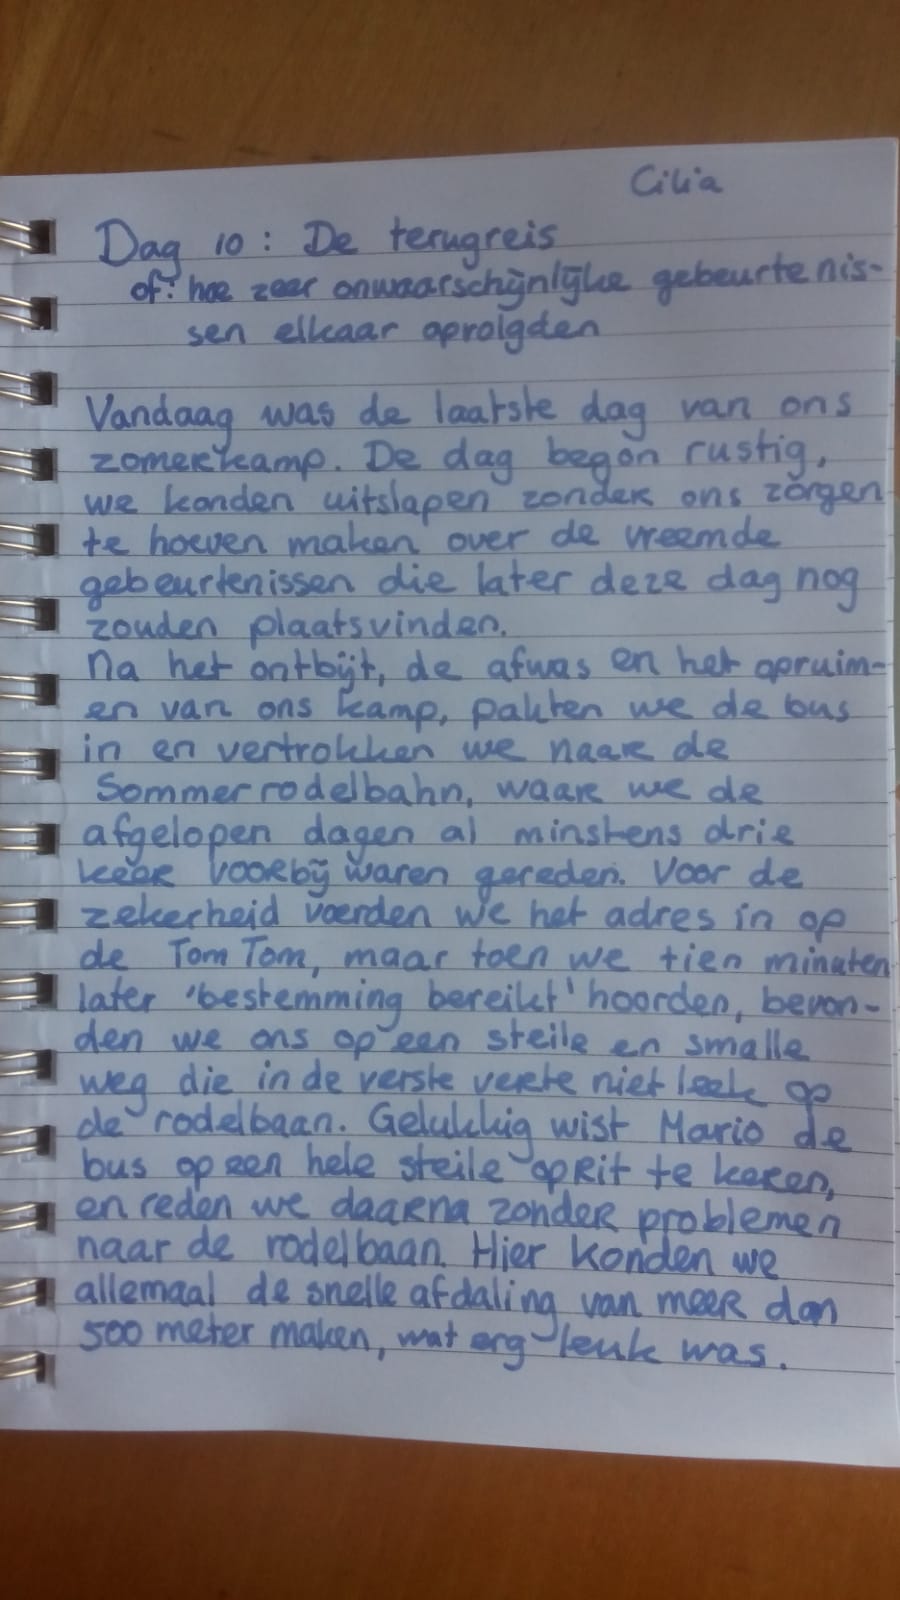 Cilia
Dag 10: De terugreis
of: hoe zeer onwaarschijnlijke gebeurtenis-
sen elkaar opvolgden
Vandaag was de laatste dag van ons
zomerkamp. De dag begon rustig,
we konden uitslapen zonder ons zorgen
te hoeven maken over de vreemde
gebeurtenissen die later deze dag nog
zouden plaatsvinden.
Na het ontbijt, de afwas en het opruim-
en van ons kamp, pakten we de bus
in en vertrokken we naar de
Sommerrodelbahn, waar we de
afgelopen dagen al minstens drie
keer voorbij waren gereden. Voor de
zekerheid voerden we het adres in op
de TomTom, maar toen we tien minuten
later 'bestemming bereikt' hoorden, bevon-
den we ons op een steile en smalle
weg die in de verste verte niet leek op
de rodelbaan. Gelukkig wist Mario de
bus op een hele steile oprit te keren,
en reden we daarna zonder problemen
naar de rodelbaan. Hier konden we
allemaal de snelle afdaling van meer dan
500 meter maken, wat erg leuk was.